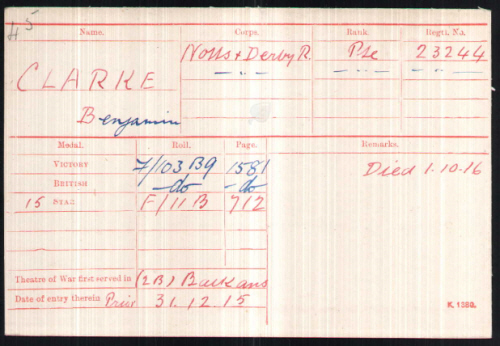 45
Name. Corps. Rank. Regtl. No.
CLARKE Notts & Derby R. Pte 23244
Benjamin
Medal. Roll. Page. Remarks.
VICTORY F/103 B9 1581 Died 1-10-16
BRITISH -do- -do-
15 STAR F/11 B 712
Theatre of War first served in (2B) Balkans
Date of entry therein Prior 31.12.15
K 1380.